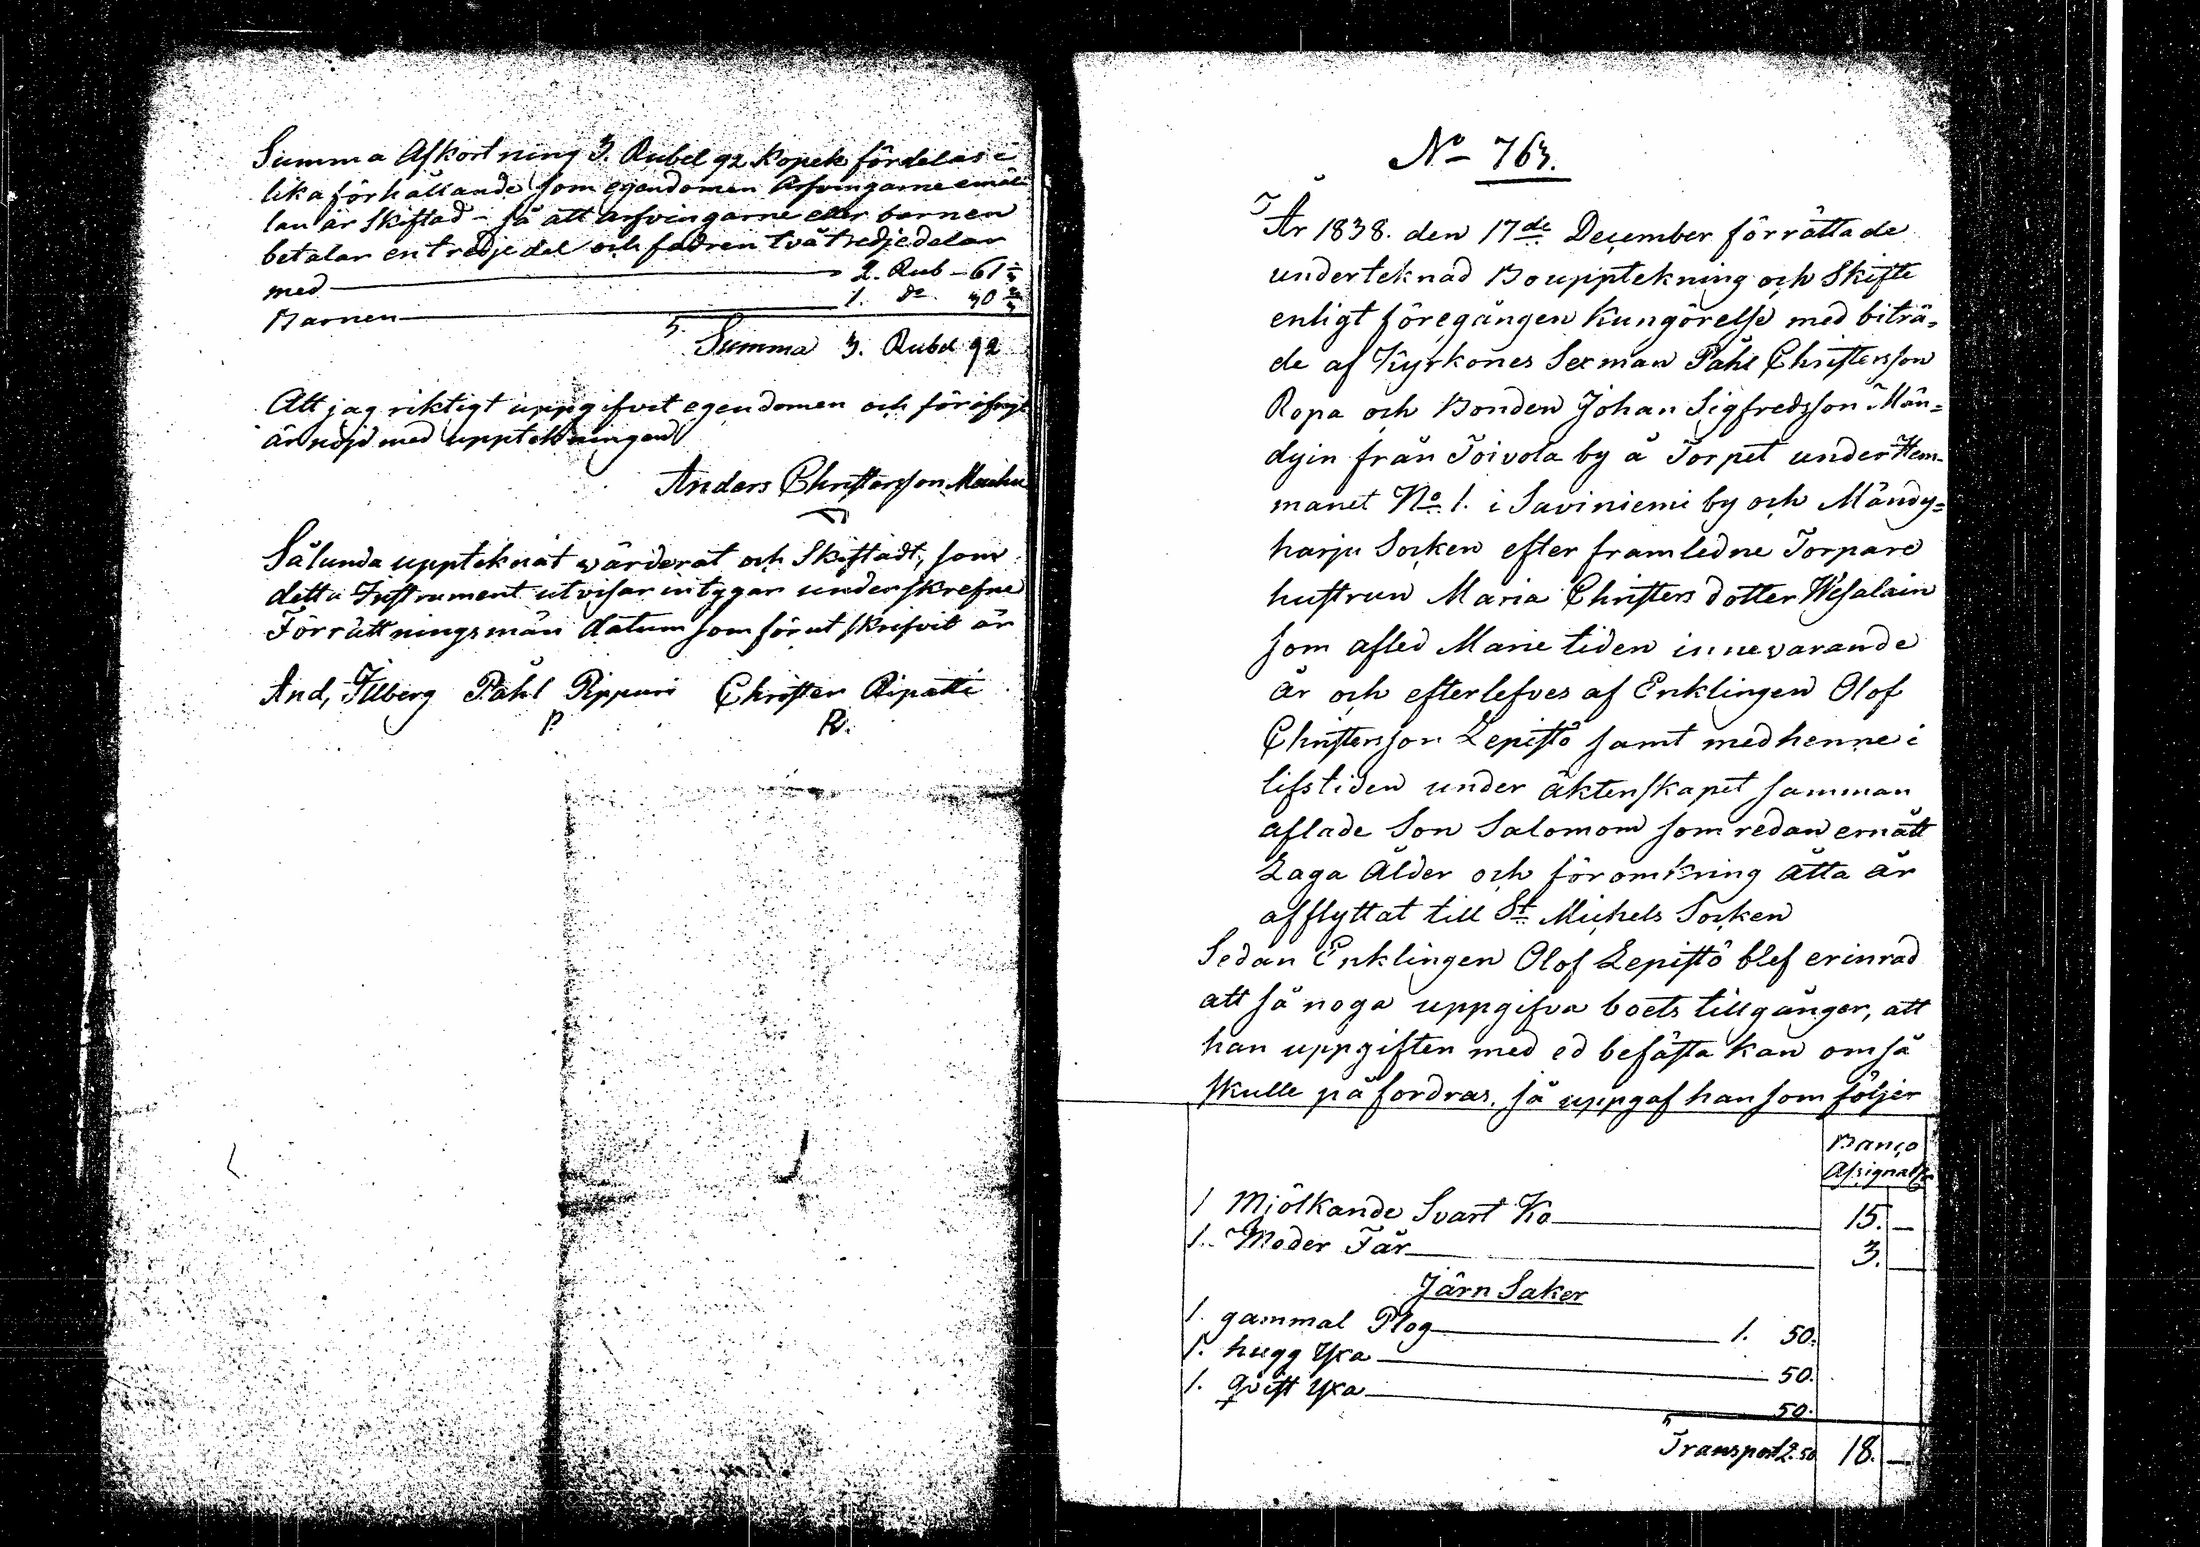 Summa Afkortning 3. Rubel 92 Kopek fördelas i
lika förhållande som egendomen Arfvingarne emäl
lan är skiftad - så att arfvingarne eller barnen
betalar en tredje del och fadren två tredjedelar
med 2. Rub - 61 1/3
Barnen 1. do 30 2/3
Summa 3. Rubel 92
Att jag riktigt uppgifvit egendomen och för öfrigt
är nöjd med upptekningen
Anders Christersson
Sålunda uppteknat värderat och Skiftadt, som
detta Instrument utvisar intygar underskrefne
Förrättningsmän datum som förut skrifvit är
And, Ilberg Påhl Pippuri Christer Ripatti
P. R.
No 763.
År 1838. den 17de December förrättade
underteknad Bouppteckning och Skifte
enligt föregången Kungörelse med biträ=
de af Kyrkones Sexman Påhl Christersson
Ropa och Bonden Johan Sigfredsson Män=
dyin från Toivola by å Torpet under Hem-
manet No 1. i Saviniemi by och Mändy=
harju Socken efter framledne Torpare
hustrun Maria Christersdotter Wesalain
som afled Marie tiden innevarande
år och efterlefves af Enklingen Olof
Christersson Lepistö samt med henne i
lifstiden under äktenskapet samman
aflade Son Salomom som redan ernått
Laga Ålder och för omkring åtta år
afflyttat till St Michels Socken
Sedan Enklingen Olof Lepistö blef erinrad
att så noga uppgifva boets tillgånger, att
han uppgiften med ed befästa kan om så
skulle påfordras. så uppgaf han som följer
Banco
Assignat
1 Mjölkande Svart Ko 15. —
1. Moder Får 3. —
Järn Saker
1. gammal Plog 1. 50.
1. hugg Yxa 50.
1. qvist Yxa 50.
Transport 2. 50 18. —